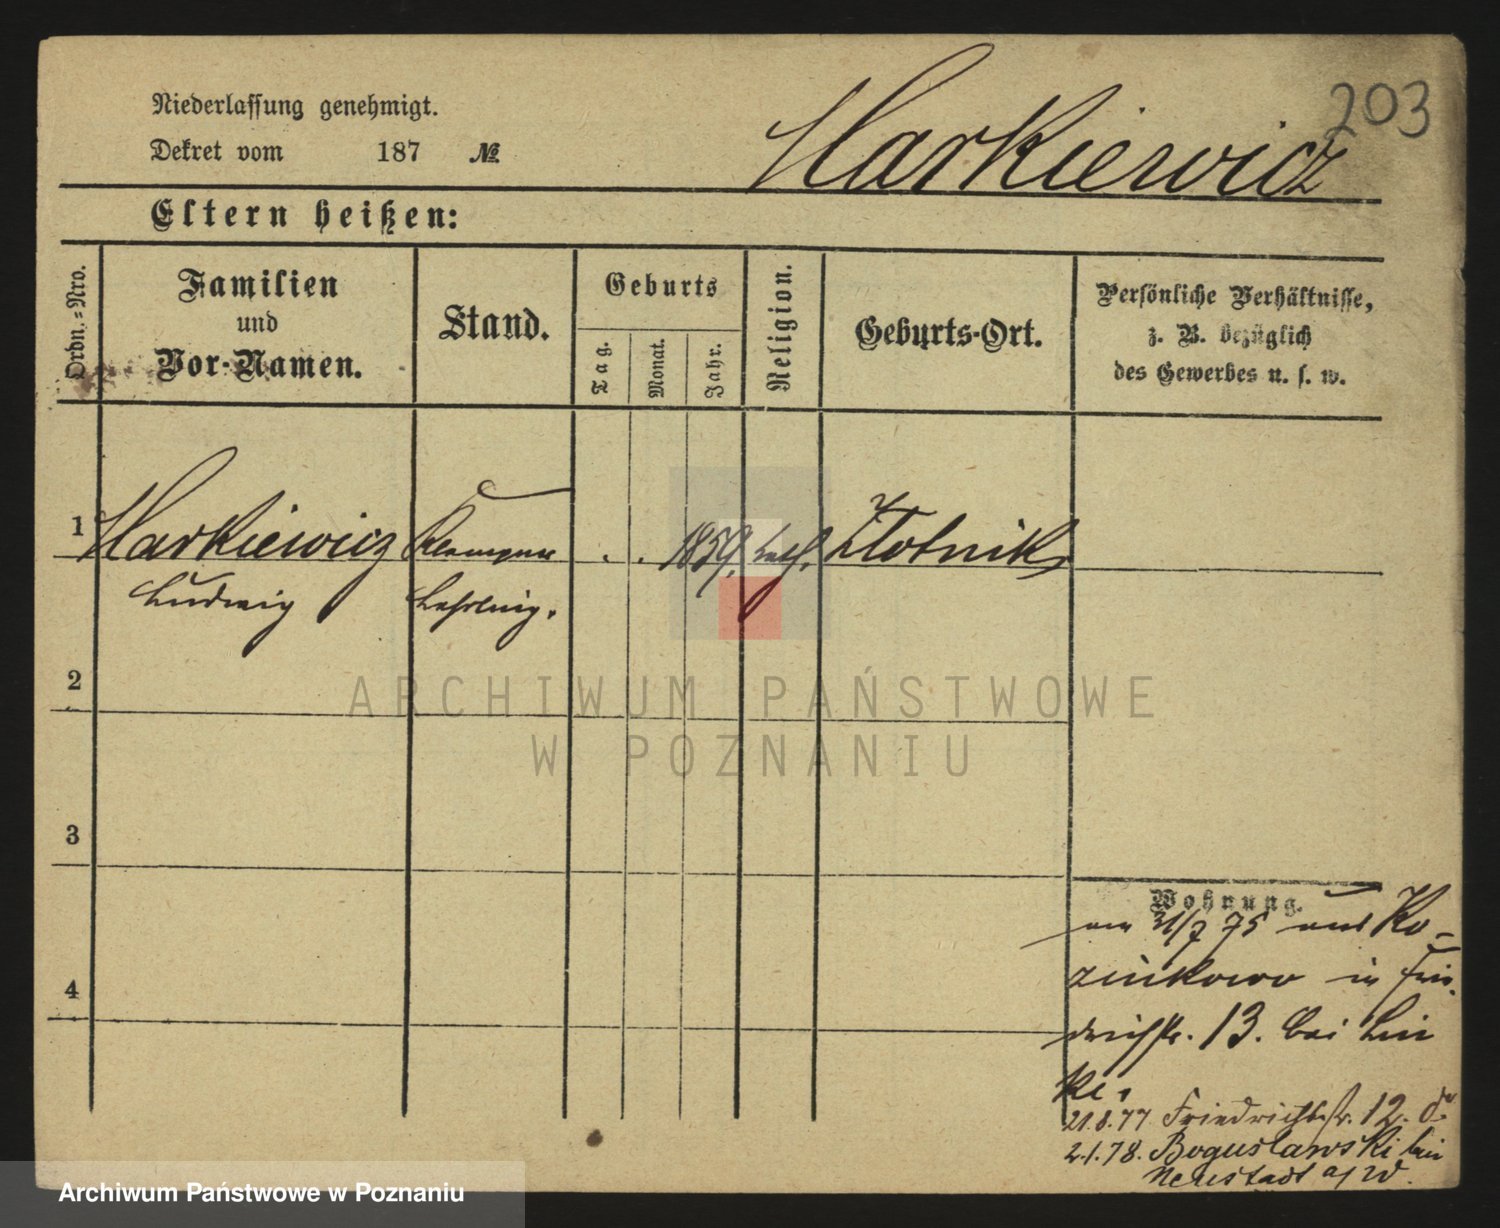 203
Niederlassung genehmigt.
Dekret vom 187 №
Markiewicz
Eltern heißen:
Ordn.=Nro.
Familien
und
Vor-Namen.
Stand.
Geburts
Tag.
Monat.
Jahr.
Religion.
Geburts-Ort.
Persönliche Verhältnisse,
z. B. bezüglich
des Gewerbes u. s. w.
1 Markiewicz Klempner . . 1859. kath. Złotnik
Ludwig Lehrling.
2
3
4
Wohnung.
am 31/7 75 aus Ko-
zinkowo in Frie-
drichstr. 13. bei Lin
ke.
21.8.77 Friedrichstr. 12.
2.1.78. Boguslawski bei
Neustadt a/W.
ARCHIWUM PAŃSTWOWE
W POZNANIU
Archiwum Państwowe w Poznaniu